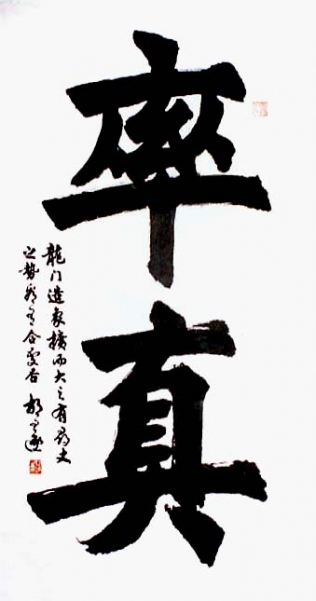 率真
龍门造象擴而大之有尋丈
之勢